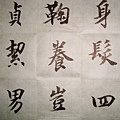 身髮四
鞠養豈
貞絜男